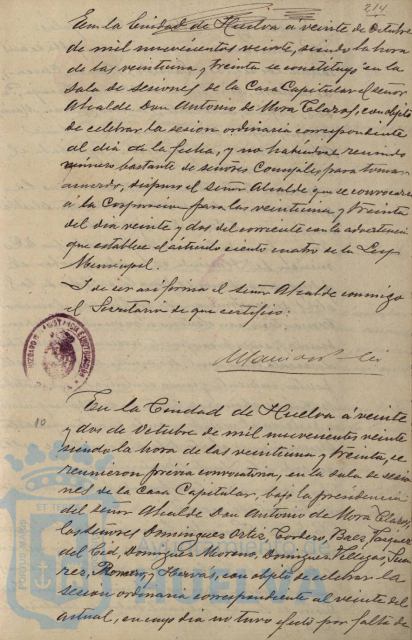 214
En la Ciudad de Huelva á veinte de Octubre
de mil nuevecientos veinte, siendo la hora
de las veintiuna y treinta se constituyó en la
Sala de sesiones de la Casa Capitular el señor
Alcalde Don Antonio de Mora Claros, con objeto
de celebrar la sesion ordinaria correspondiente
al dia de la fecha, y no habiendose reunido
número bastante de señores Concejales para tomar
acuerdo, dispuso el señor Alcalde que se convocara
á la Corporacion para las veintiuna y treinta
del dia veinte y dos del corriente con la advertencia
que establece el artículo ciento cuatro de la Ley
Municipal.
Y de ser asi firma el señor Alcalde conmigo
el Secretario de que certifico:
10
En la Ciudad de Huelva á veinte
y dos de Octubre de mil nuevecientos veinte
siendo la hora de las veintiuna y treinta, se
reunieron prévia convocatoria, en la sala de sesio
nes de la Casa Capitular, bajo la presidencia
del señor Alcalde Don Antonio de Mora Claros,
los señores Dominguez Ortiz, Cordero, Baez, Vazquez
del Cid, Dominguez Moreno, Dominguez Villegas, Sua
res, Romero, y Hervas, con objeto de celebrar la
sesion ordinaria correspondiente al veinte del
actual, en cuyo dia no tuvo efecto por falta de
PORTUS MARIS
HUELVA